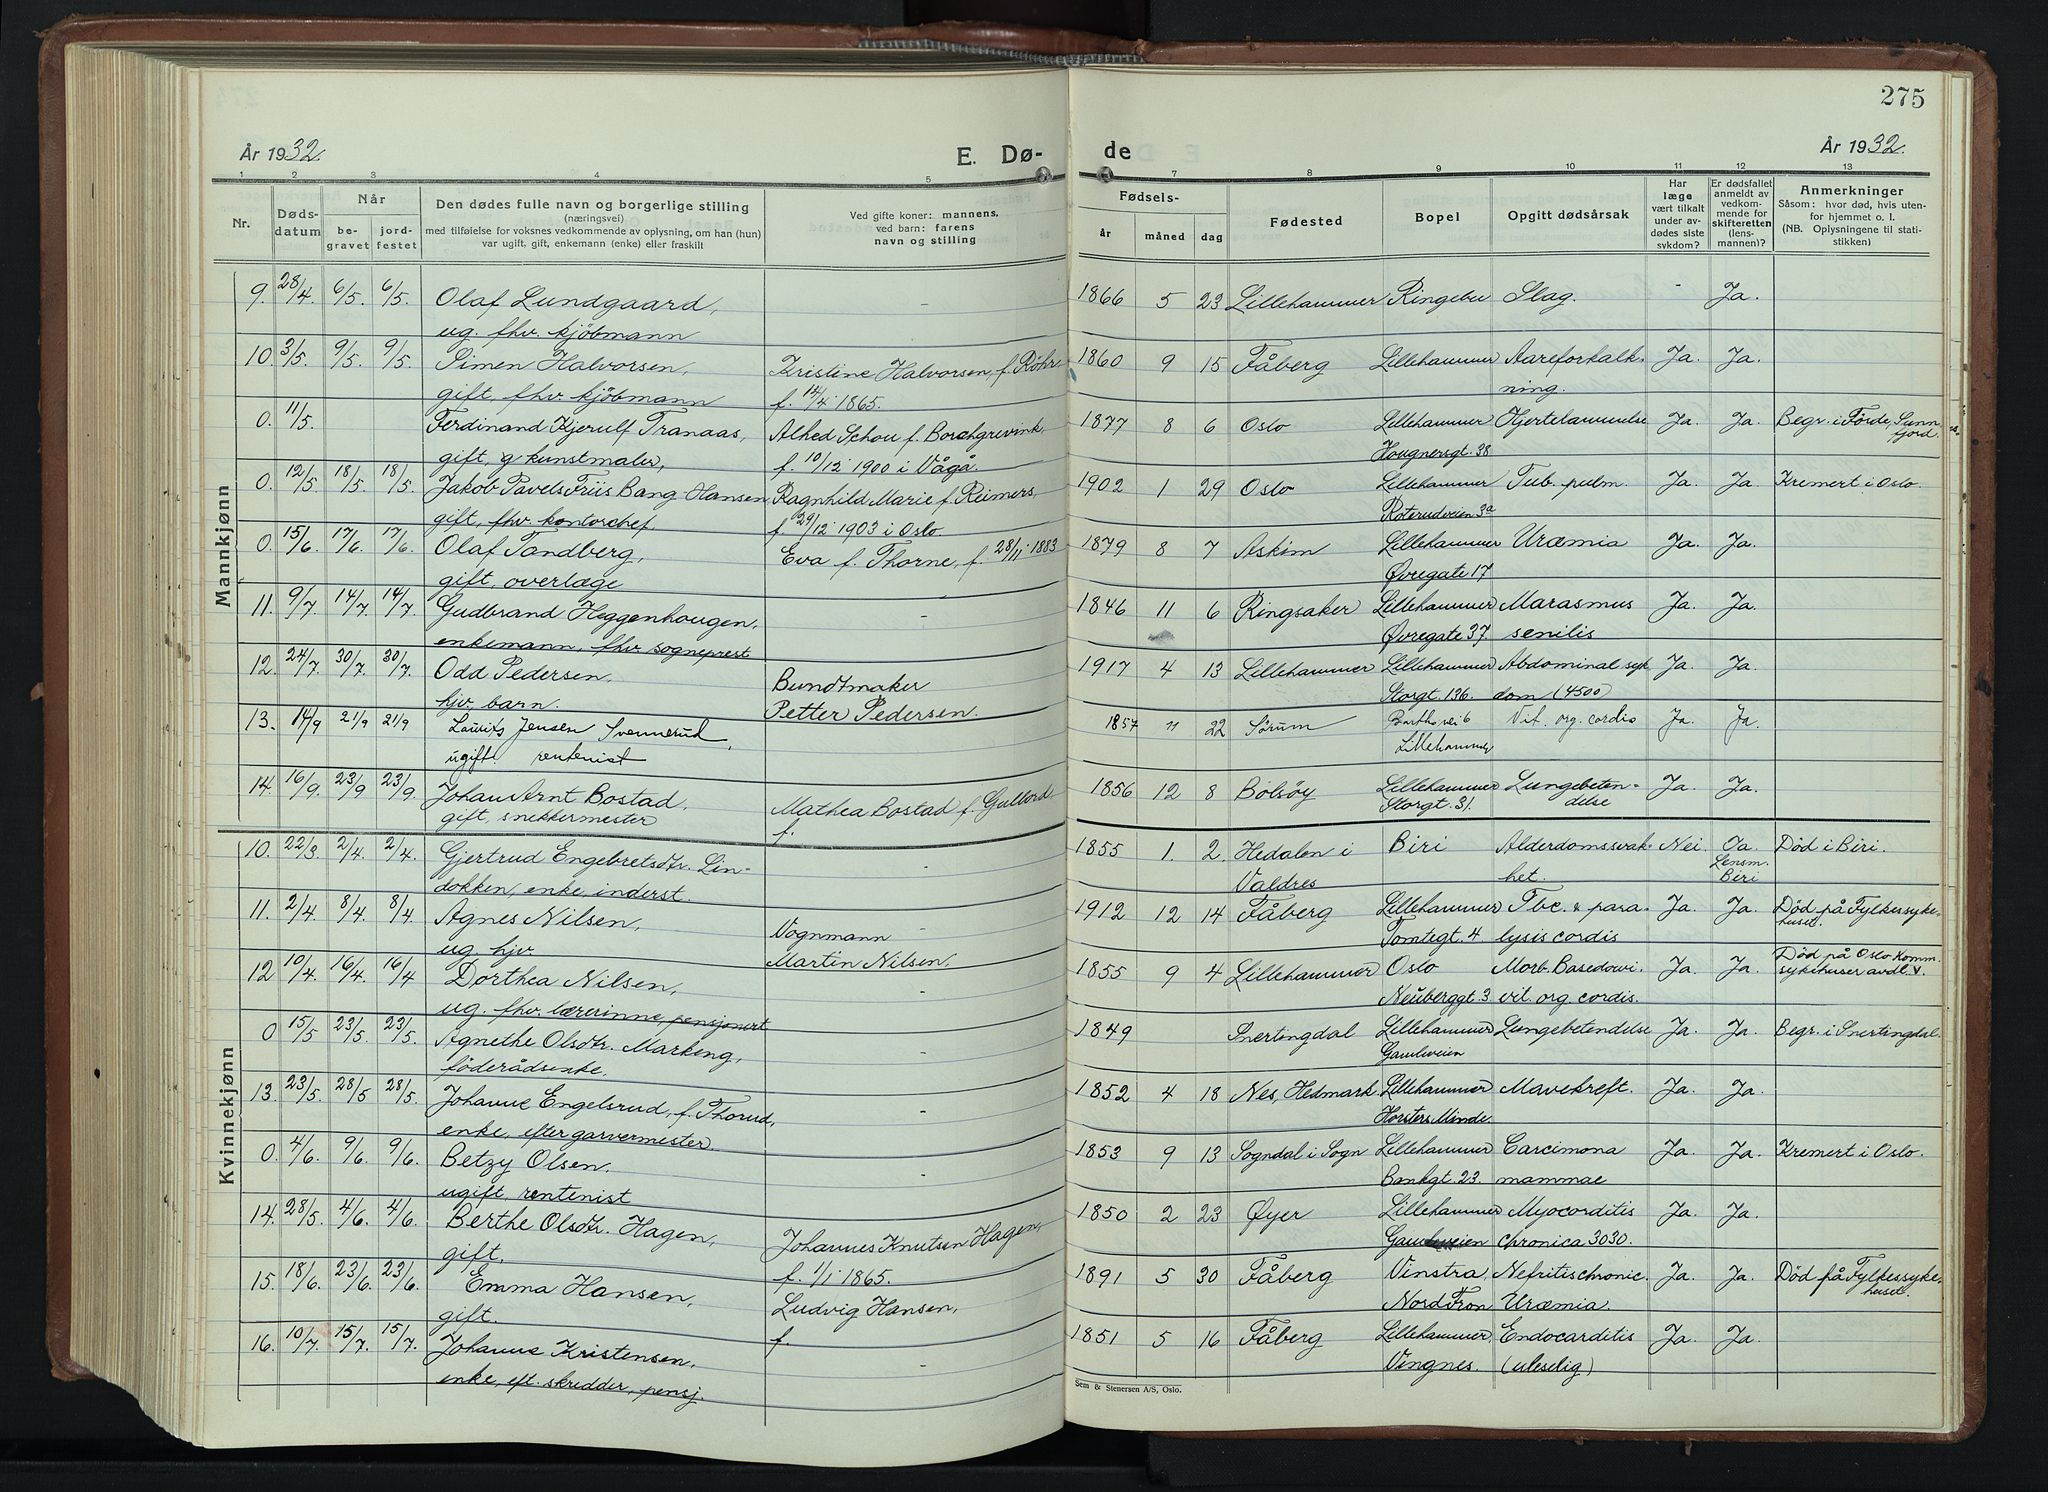 275
År 1932.
E. Dø-
de
År 1932.
1 2 3 4 5 7 8 9 10 11 12 13
Nr.
Døds-
datum
Når
be-
gravet
jord-
festet
Den dødes fulle navn og borgerlige stilling
(næringsvei)
med tilføielse for voksnes vedkommende av oplysning, om han (hun)
var ugift, gift, enkemann (enke) eller fraskilt
Ved gifte koner: mannens,
ved barn: farens
navn og stilling
Fødsels-
år
måned
dag
Fødested
Bopel
Opgitt dødsårsak
Har
læge
vært tilkalt
under av-
dødes siste
sykdom?
Er dødsfallet
anmeldt av
vedkom-
mende for
skifteretten
(lens-
mannen)?
Anmerkninger
Såsom: hvor død, hvis uten-
for hjemmet o. l.
(NB. Oplysningene til stati-
stikken)
Mannkjønn
9. 28/4. 6/5. 6/5. Olaf Lundgaard, - 1866 5 23 Lillehammer Ringebu Slag. - Ja.
ug. fhv. kjöbmann
10. 3/5. 9/5. 9/5. Simen Halvorsen, Kristine Halvorsen, f. Röhr, 1860 9 15 Fåberg Lillehammer Aareforkalk- Ja. Ja.
gift, fhv. kjöbmann f. 14/4 1865. ning.
0. 11/5. Ferdinand Kjerulf Tranaas, Alhed Schou f. Borchgrevink, 1877 8 6 Oslo Lillehammer Hjertelammelse Ja. Ja. Begr. i Förde, Sunn-
fjord.
gift, g kunstmaler, f. 10/12 1900 i Vågå. Hougnersgt. 38
0. 12/5. 18/5. 18/5. Jakob Pavels Friis Bang Hansen, Ragnhild Marie f. Reimers, 1902 1 29 Oslo Lillehammer Tub. pulm. Ja. Ja. Kremert i Oslo.
gift, fhv. kontorchef f. 29/12 1903 i Oslo. Roterudveien 3a
0. 15/6. 17/6. 17/6. Olaf Tandberg, Eva f. Thorne, f. 28/11 1883 1879 8 7 Askim Lillehammer Uræmia Ja. Ja.
gift, overlæge Øvregate 17
11. 9/7. 14/7. 14/7. Gudbrand Heggenhougen, - 1846 11 6 Ringsaker Lillehammer Marasmus Ja. Ja.
enkemann, fhv. sogneprest Øvregate 37. senilis
12. 24/7. 30/7. 30/7. Odd Pedersen, Bundtmaker 1917 4 13 Lillehammer Lillehammer Abdominal syk Ja. Ja.
hjv. barn. Petter Pedersen. Storgt. 136. dom (4500)
13. 14/9 21/9 21/9 Laurits Jensen Svennerud, 1857 11 22 Sörum Barths vei 6 Vit. org. cordis Ja. Ja.
ugift rentenist Lillehammer
14. 16/9. 23/9 23/9 Johan Arnt Bostad, Mathea Bostad f. Gullord, 1856 12 8 Bolsöy Lillehammer Lungebeten- Ja. Ja.
gift, snekkermester f. Storgt. 31. delse
Kvinnekjønn
10. 22/3. 2/4. 2/4. Gjertrud Engebretsdtr. Lin- - 1855 1. 2. Hedalen i Biri Alderdomssvak- Nei. Oa. Död i Biri.
dokken, enke, inderst. Valdres het. Lensm.
Biri
11. 2/4. 8/4. 8/4. Agnes Nilsen, Vognmann 1912 12 14 Fåberg Lillehammer Tbc. & para- Ja. Ja. Död på Fylkessyke-
huset.
ug. hjv. Martin Nilsen. Tomtegt. 4 lysis cordis
12 10/4. 16/4. 16/4 Dorthea Nilsen, - 1855 9 4 Lillehammer Oslo Morb. Basedowi Ja. Ja. Död på Oslo komm.
sykehuser avdl. V.
ug. fhv. lærerinne, pensjonert Neuberggt. 3 vit. org. cordis.
0 15/5 23/5. 23/5. Agnethe Olsdtr. Markeng, - 1849 Snertingdal Lillehammer Lungebetendelse Ja. Ja. Begr. i Snertingdal.
föderådsenke. Gamleveien
13. 23/5. 28/5 28/5. Johanne Engelsrud, f. Thorud, - 1852 4 18 Nes, Hedmark Lillehammer Mavekreft. Ja. Ja.
enke, efter garvermester Horsters Minde.
0. 4/6. 9/6. 9/6. Betzy Olsen. - 1853 9 13 Sogndal i Sogn Lillehammer Carcimona Ja. Ja. Kremert i Oslo.
ugift, rentenist Bankgt. 23. mammae
14. 28/5. 4/6. 4/6. Berthe Olsdtr. Hagen, Johannes Knutsen Hagen, 1850 2 23 Øyer Lillehammer Myocorditis Ja. Ja.
gift, f. 1/1 1865. Gamleveien chronica 3030.
15. 18/6. 23/6. 23/6. Emma Hansen, Ludvig Hansen, 1891 5 30 Fåberg Vinstra, Nefritischronic. Ja. Ja. Död på Fylkessyke-
huset.
gift. f. Nord Fron Uræmia.
16. 10/7. 15/7. 15/7. Johanne Kristensen, - 1851 5 16 Fåberg Lillehammer, Endocarditis Ja. Ja.
enke, eft. skredder, pensj. Vingnes. (uleselig)
Sem & Stenersen A/S, Oslo.